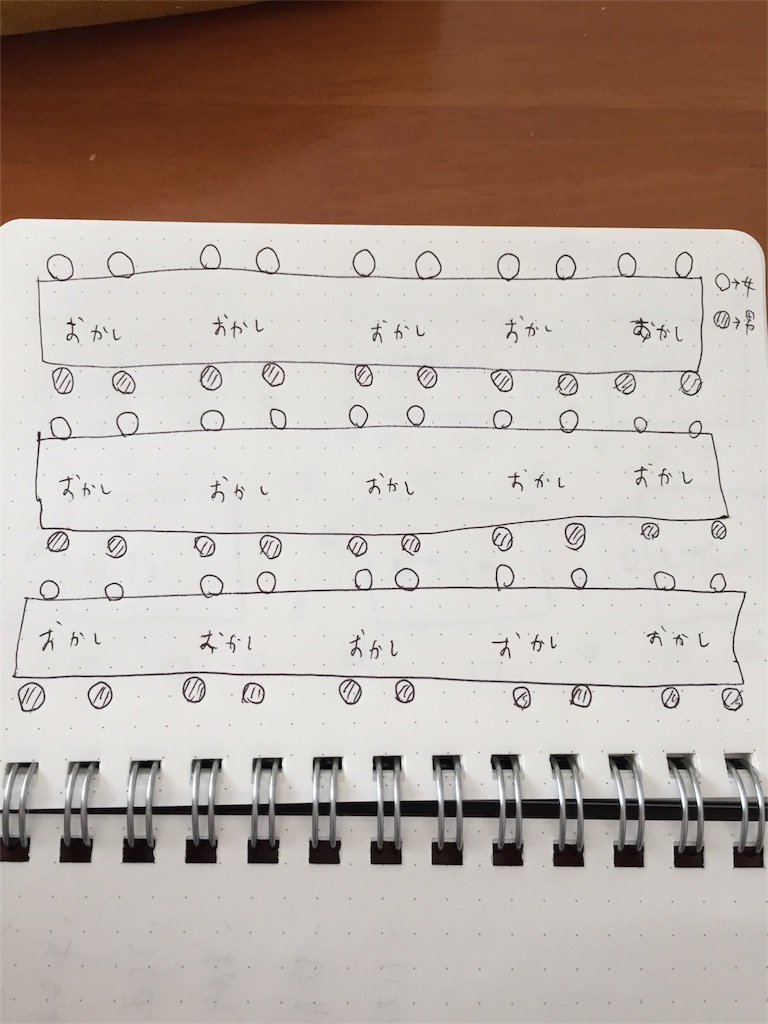 ○→女
◍→男
おかし おかし おかし おかし おかし
おかし おかし おかし おかし おかし
おかし おかし おかし おかし おかし